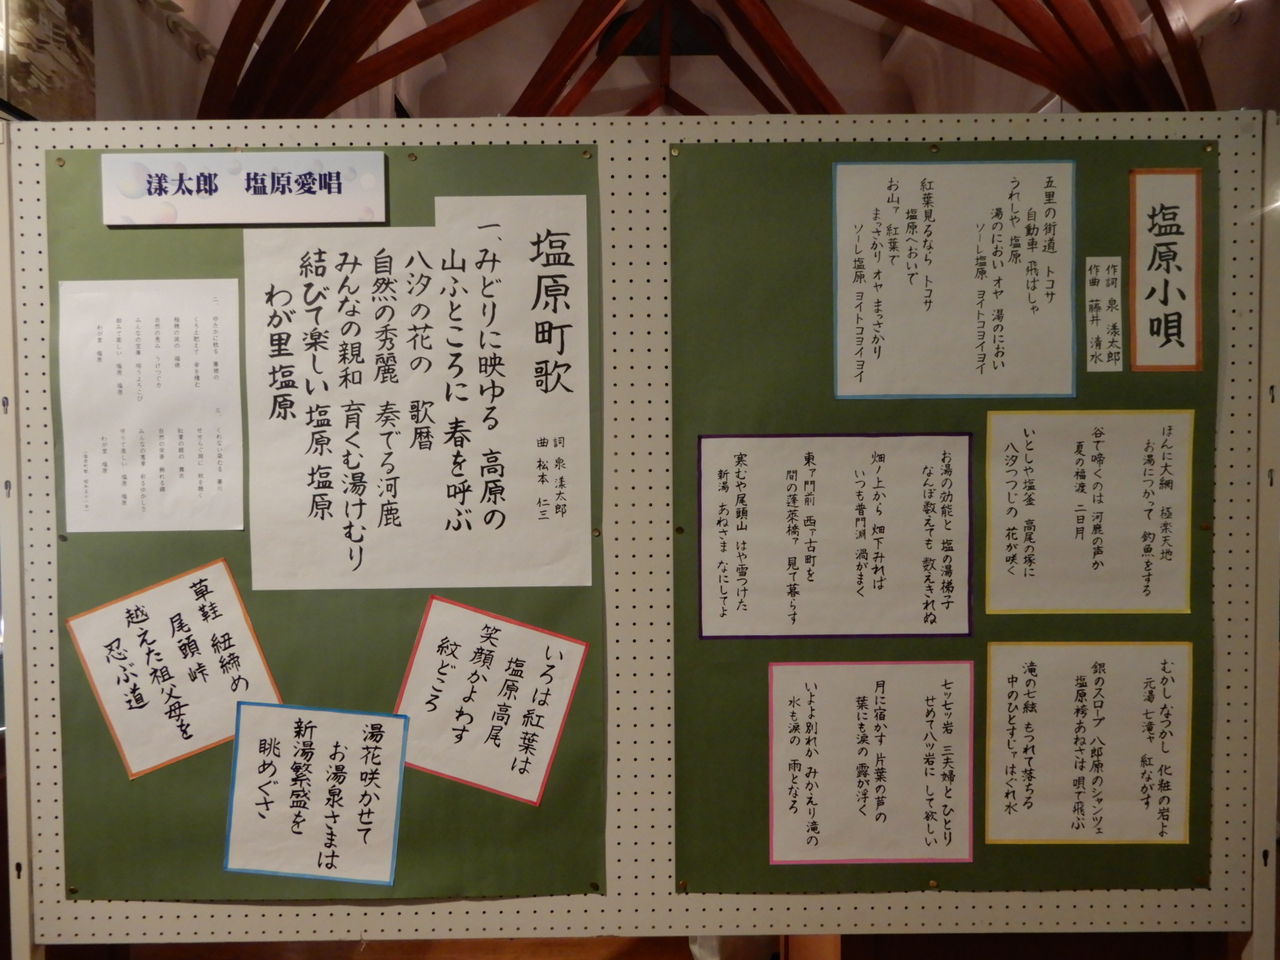 漾太郎 塩原愛唱
塩原町歌
詞 泉 漾太郎
曲 松本 仁三
一、みどりに映ゆる 高原の
山ふところに 春を呼ぶ
八汐の花の 歌暦
自然の秀麗 奏でる河鹿
みんなの親和 育くむ湯けむり
結びて楽しい 塩原 塩原
わが里 塩原
草鞋 紐締め
尾頭峠
越えた祖父母を
忍ぶ道
湯花咲かせて
お湯泉さまは
新湯繁盛を
眺めぐさ
いろは紅葉は
塩原高尾
笑顔かよわす
紋どころ
塩原小唄
作詞 泉 漾太郎
作曲 藤井 清水
五里の街道 トコサ
自動車 飛ばしゃ
うれしや 塩原
湯のにおい オヤ 湯のにおい
ソーレ塩原 ヨイトコヨイヨイ
紅葉見るなら トコサ
塩原へおいで
お山ァ 紅葉で
まっさかり オヤ まっさかり
ソーレ塩原 ヨイトコヨイヨイ
ほんに大網 極楽天地
お湯につかって 釣魚をする
谷で啼くのは 河鹿の声か
夏の福渡 二日月
いとしや塩釜 高尾の塚に
八汐つつじの 花が咲く
お湯の効能と 塩の湯梯子
なんぼ数えても 数えきれぬ
畑ノ上から 畑下みれば
いつも普門淵 渦がまく
東ァ門前 西ァ古町を
間の蓬莱橋ァ 見て暮らす
寒むや尾頭山 はや雪つけた
新湯 あねさま なにしてよ
むかし なつかし 化粧の岩よ
元湯 七滝ャ 紅ながす
銀のスロープ 八郎原のシャンツェ
塩原袴あねさは 唄で飛ぶ
滝の七絃 もつれて落ちる
中のひとすじァ はぐれ水
七ッ七ッ岩 三夫婦と ひとり
せめて八ッ岩に して欲しい
月に宿かす 片葉の芦の
葉にも涙の 露が浮く
いよよ別れか みかえり滝の
水も涙の 雨となる